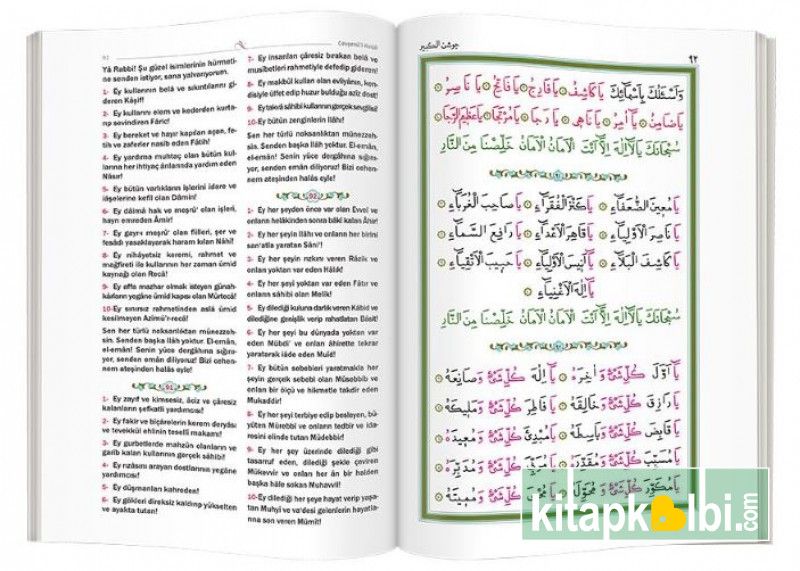 92
Cevşenü'l-Kebîr
Yâ Rabbi! Şu güzel isimlerinin hürmeti-
ne senden istiyor, sana yalvarıyorum.
1- Ey kullarının belâ ve sıkıntılarını gi-
deren Kâşif!
2- Ey kullarını elem ve kederden kurta-
rıp sevindiren Fâric!
3- Ey bereket ve hayır kapıları açan, fe-
tih ve zaferler nasib eden Fâtih!
4- Ey yardıma muhtaç olan bütün kul-
larına her ihtiyaç ânlarında yardım eden
Nâsır!
5- Ey bütün varlıkların işlerini idare ve
iâşelerine kefil olan Dâmin!
6- Ey dâimâ hak ve meşrû' olan işleri,
hayrı emreden Âmir!
7- Ey gayrı meşrû' olan fiilleri, şer ve
fesâdı yasaklayarak haram kılan Nâhî!
8- Ey nihâyetsiz keremi, rahmet ve
mağfireti ile kullarının her zaman ümid
kaynağı olan Recâ!
9- Ey affa mazhar olmak isteyen günah-
kârların yegâne ümid kapısı olan Mürtecâ!
10- Ey sınırsız rahmetinden aslâ ümid
kesilmeyen Azîmü'r-recâ!
Sen her türlü noksanlıktan münezzeh-
sin. Senden başka İlâh yoktur. El-emân,
el-emân! Senin yüce dergâhına sığını-
yor, senden emân diliyoruz! Bizi cehen-
nem ateşinden halâs eyle!
91
1- Ey zayıf ve kimsesiz, âciz ve çâresiz
kalanların şefkatli yardımcısı!
2- Ey fakir ve biçârelerin kerem deryâsı
ve tevekkül ehlinin teselli makamı!
3- Ey gurbetlerde mahzun olanların ve
garib kalan kullarının gerçek sâhibi!
4- Ey rızâsını arayan dostlarının yegâne
yardımcısı!
5- Ey düşmanları kahreden!
6- Ey gökleri direksiz kaldırıp yükselten
ve ayakta tutan!
7- Ey insanları çâresiz bırakan belâ ve
musibetleri rahmetiyle defedip gideren!
8- Ey makbül kulları olan evliyânın, ken-
disiyle ülfet edip huzur bulduğu azîz dost!
9- Ey takvâ sâhibi kullarının gerçek sevgilisi!
10- Ey bütün zenginlerin ilâhı!
Sen her türlü noksanlıktan münezzeh-
sin. Senden başka İlâh yoktur. El-emân,
el-emân! Senin yüce dergâhına sığını-
yor, senden emân diliyoruz! Bizi cehen-
nem ateşinden halâs eyle!
92
1- Ey her şeyden önce var olan Evvel ve
onların helâkinden sonra bâkî kalan Âhir!
2- Ey her şeyin İlâhı ve onların her birini
san'atla yaratan Sâni'!
3- Ey her şeyin rızkını veren Râzık ve
onları yoktan var eden Hâlık!
4- Ey her şeyi yoktan var eden Fâtır ve
onların sâhibi olan Melîk!
5- Ey dilediği kuluna darlık veren Kâbid ve
dilediğine genişlik verip rahatlatan Bâsit!
6- Ey her şeyi bu dünyada yoktan var
eden Mübdi' ve onları âhirette tekrar
yaratarak iâde eden Muîd!
7- Ey bütün sebebleri yaratmakla her
şeyin gerçek sebebi olan Müsebbib
ve onları bir ölçü ve hikmetle takdir eden
Mukaddir!
8- Ey her şeyi terbiye edip besleyen, bü-
yüten Mürebbî ve onların tedbir ve ida-
resini elinde tutan Müdebbir!
9- Ey her şey üzerinde dilediği gibi
tasarruf eden, dilediği şekle çeviren
Mükevvir ve onları her ân bir halden
başka hâle sokan Muhavvil!
10- Ey dilediği her şeye hayat verip yaşa-
tan Muhyî ve va'desi gelenlerin hayatla-
rına son veren Mümît!
جوشن الكبير
٩٢
وَاَسْئَلُكَ بِاَسْمَائِكَ يَا كَاشِفُ يَا فَارِجُ يَا فَاتِحُ يَا نَاصِرُ
يَا ضَامِنُ يَا اٰمِرُ يَا نَاهِى يَا رَجَا يَا مُرْتَجَا يَا عَظِيمَ الرَّجَا
سُبْحَانَكَ يَا لَا اِلٰهَ اِلَّا اَنْتَ الْاَمَانُ الْاَمَانُ خَلِّصْنَا مِنَ النَّارِ
يَا مُعِينَ الضُّعَفَاءِ يَا كَنْزَ الْفُقَرَاءِ يَا صَاحِبَ الْغُرَبَاءِ
يَا نَاصِرَ الْاَوْلِيَاءِ يَا قَاهِرَ الْاَعْدَاءِ يَا رَافِعَ السَّمَاءِ
يَا كَاشِفَ الْبَلَاءِ يَا اَنِيسَ الْاَوْلِيَاءِ يَا حَبِيبَ الْاَتْقِيَاءِ
يَا اِلٰهَ الْاَغْنِيَاءِ
سُبْحَانَكَ يَا لَا اِلٰهَ اِلَّا اَنْتَ الْاَمَانُ الْاَمَانُ خَلِّصْنَا مِنَ النَّارِ
يَا اَوَّلَ كُلِّ شَىْءٍ وَ اٰخِرَهُ يَا اِلٰهَ كُلِّ شَىْءٍ وَ صَانِعَهُ
يَا رَازِقَ كُلِّ شَىْءٍ وَ خَالِقَهُ يَا فَاطِرَ كُلِّ شَىْءٍ وَ مَلِيكَهُ
يَا قَابِضَ كُلِّ شَىْءٍ وَ بَاسِطَهُ يَا مُبْدِئَ كُلِّ شَىْءٍ وَ مُعِيدَهُ
يَا مُسَبِّبَ كُلِّ شَىْءٍ وَ مُقَدِّرَهُ يَا مُرَبِّىَ كُلِّ شَىْءٍ وَ مُدَبِّرَهُ
يَا مُكَوِّرَ كُلِّ شَىْءٍ وَ مُحَوِّلَهُ يَا مُحْيِىَ كُلِّ شَىْءٍ وَ مُمِيتَهُ
kitapkalbi.com